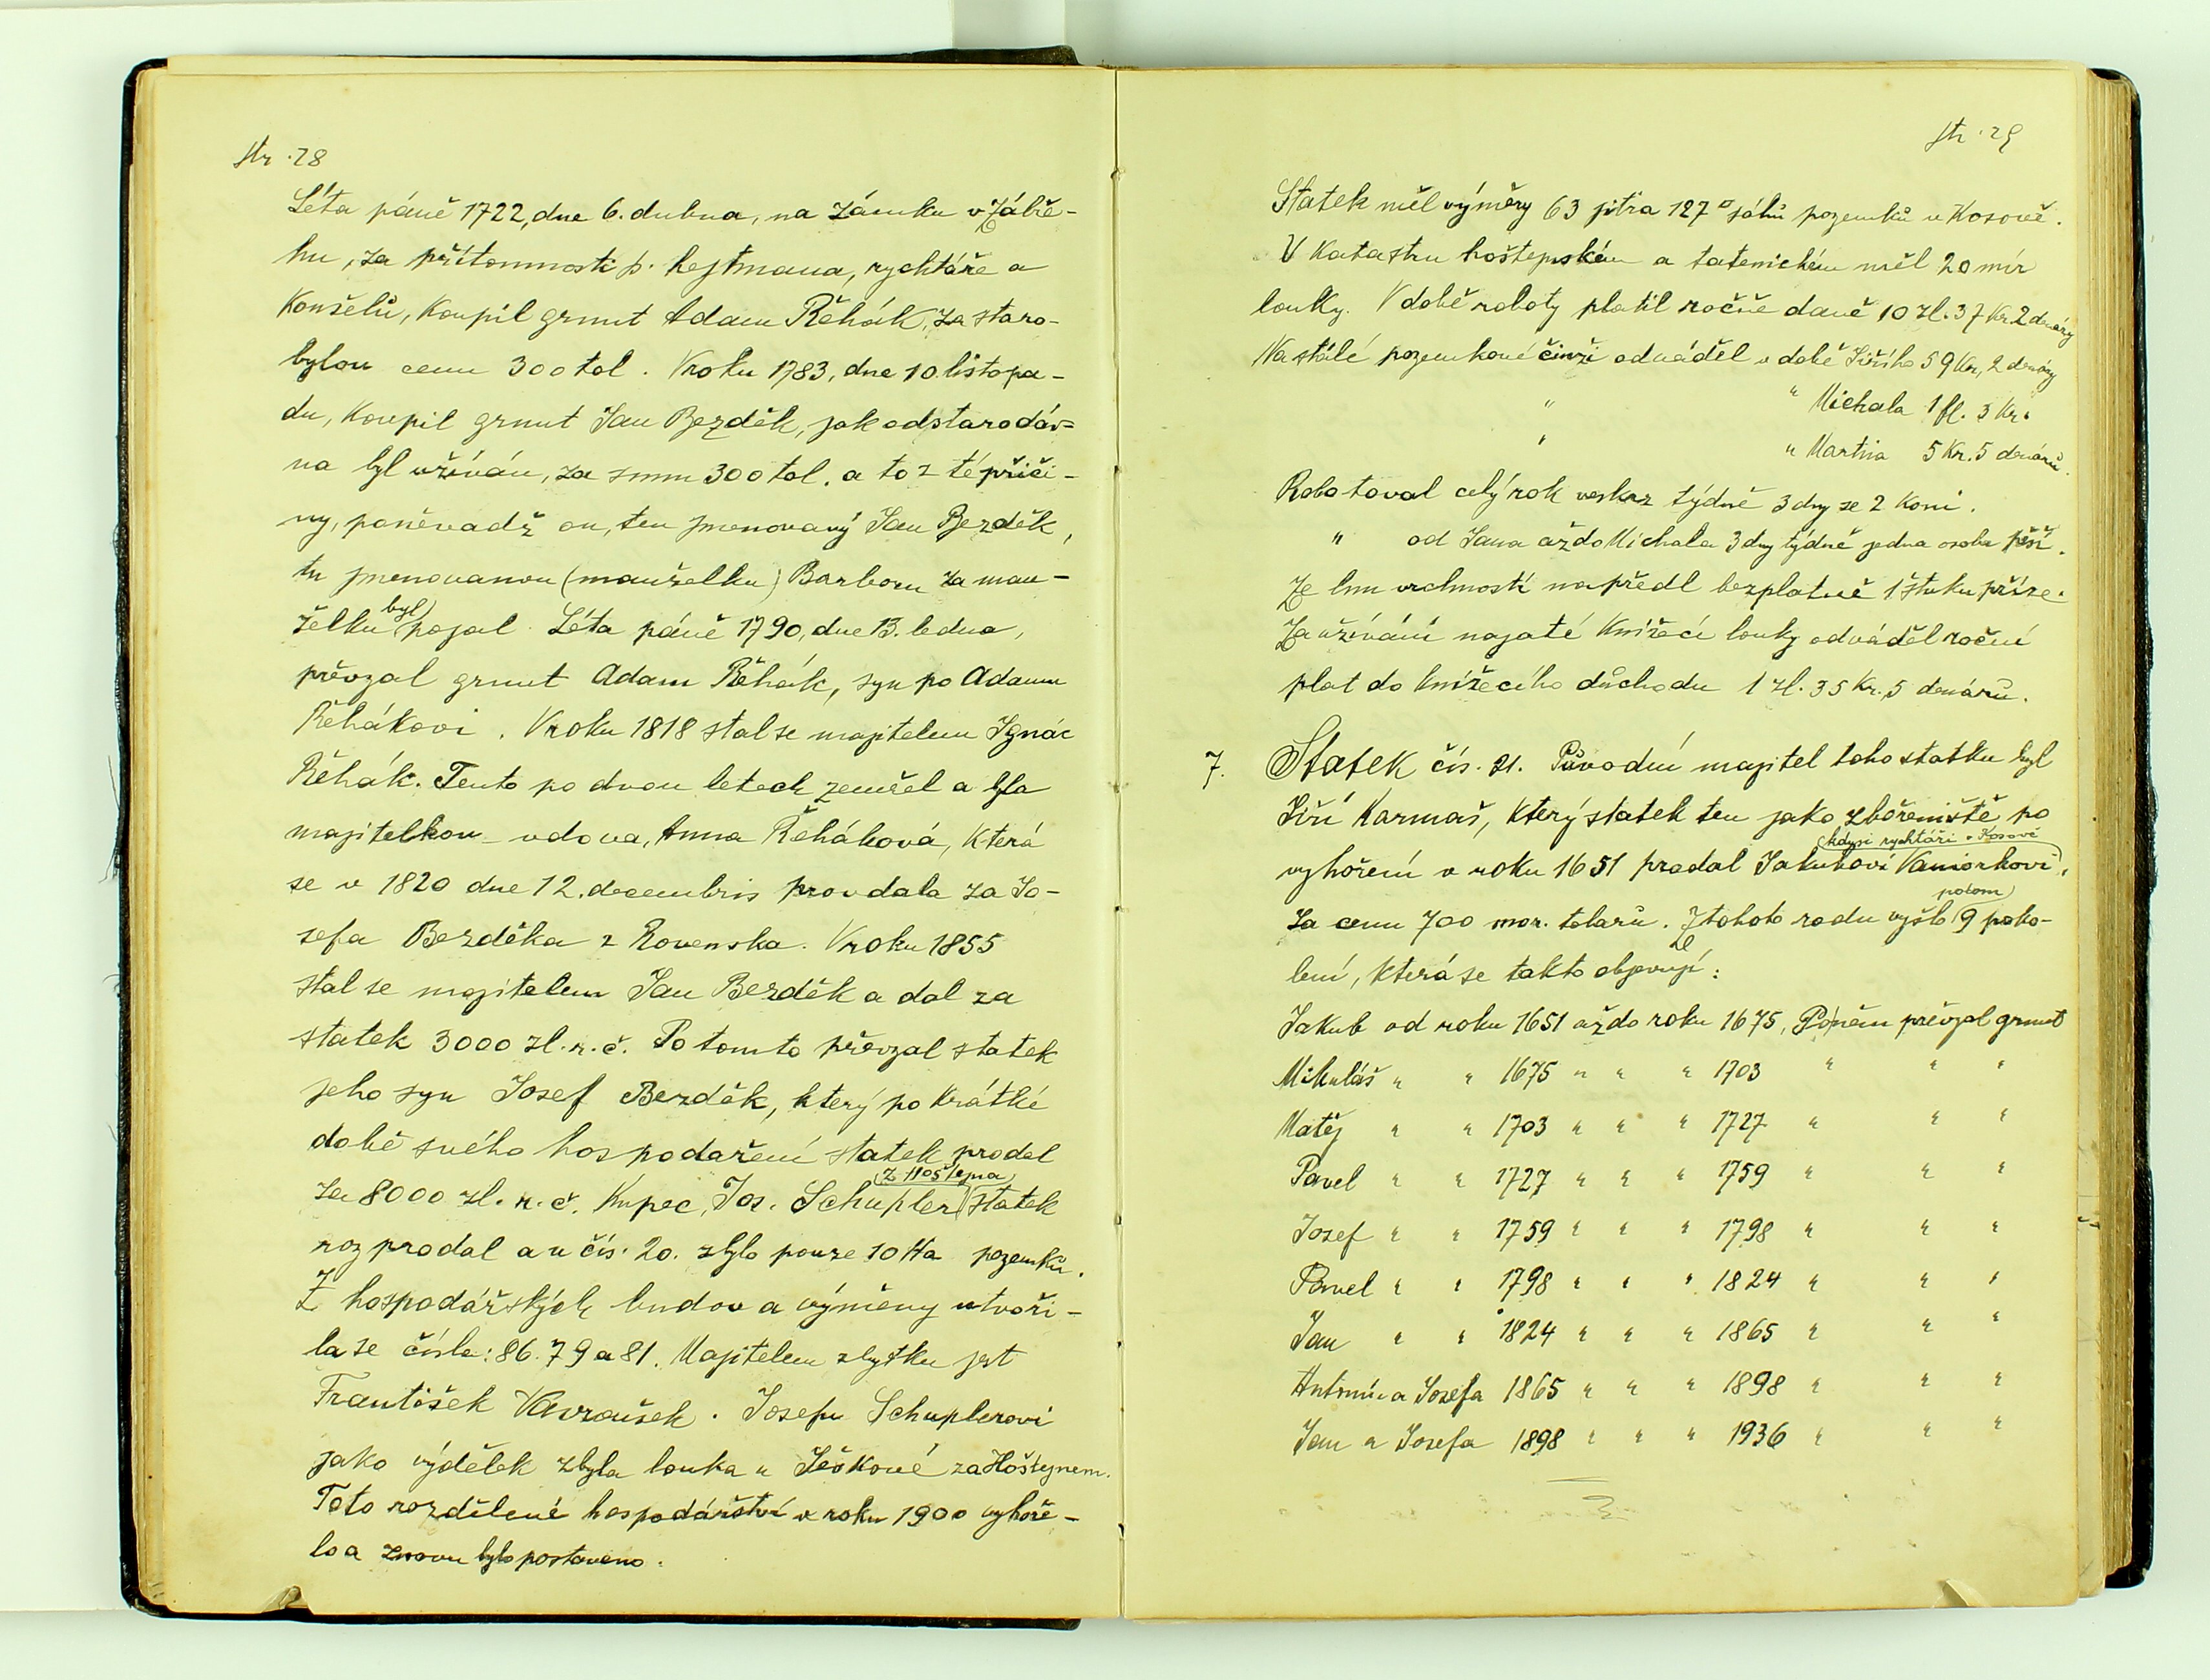 str. 28
Léta páně 1722, dne 6. dubna, na zámku v Zábře-
hu, za přítomnosti p. hejtmana, rychtáře a
Konšelů, Koupil grunt Adam Řehák, za staro-
bylou cenu 300 tol. V roku 1783, dne 10. listopa-
du, Koupil grunt Jan Bezděk, jak odstarodáv-
na byl užíván, za sumu 300 tol. a to z té příči-
ny, poněvadž on, ten jmenovaný Jan Bezděk,
tu jmenovanou (manželku) Barboru za man-
byl
želku pojal. Léta páně 1790, dne 13. ledna,
převzal grunt Adam Řehák, syn po Adamu
Řehákovi. V roku 1818 stal se majitelem Ignác
Řehák. Tento po dvou letech zemřel a byla
majitelkou vdova, Anna Řeháková, Která
se v 1820 dne 12. decembris provdala za Jo-
sefa Bezděka z Rovenska. V roku 1855
stal se majitelem Jan Bezděk a dal za
statek 3000 zl. r. č. Po tomto převzal statek
jeho syn Josef Bezděk, který po Krátké
době svého hospodaření statek prodal
z Hoštejna
za 8000 zl. r. č. Kupec, Jos. Schupler statek
rozprodal a u čís. 20. zbylo pouze 10 Ha pozemků.
Z hospodářských budov a výměny utvoři-
la se čísla: 86. 79 a 81. Majitelem zbytku jest
František Vavroušek. Josefu Schuplerovi
jako výdělek zbyla louka u za Hoštejnem.
Toto rozdělené hospodářství v roku 1900 vyhoře-
lo a znovu bylo postaveno.
str. 29
Statek měl výměry 63 jitra 127 □ sáhů pozemků v Kosově.
V Katastru hoštejnském a tatenickém měl 20 mír
louky. V době roboty platil ročně daně 10 zl. 37 Kr. 2 denáry
Na stálé pozemkové činži odváděl v době Jiřího 59 Kr, 2 denáry
" " Michala 1 fl. 3 Kr.
" " Martina 5 Kr. 5 denárů.
Robotoval celý rok veskrz týdně 3 dny se 2 Koni.
" od Jana až do Michala 3 dny týdně jedna osoba pěší.
Ze lnu vrchnosti napředl bezplatně 1 štuku příze.
Za užívání najaté Knížecí louky odváděl roční
plat do Knížecího důchodu 1 zl. 35 Kr. 5 denárů.
7. Statek čís. 21. Původní majitel toho statku byl
Jiří Karmaš, Který statek ten jako zbořeniště po
kdysi rychtáři v Kosově
vyhoření v roku 1651 prodal Jakubovi Vaniorkovi,
potom
za cenu 700 mor. tolarů. Z tohoto rodu vyšlo 9 poko-
lení, která se takto objevují:
Jakub od roku 1651 až do roku 1675, Po něm převzal grunt
Mikuláš " " 1675 " " " 1703 " " "
Matěj " " 1703 " " " 1727 " " "
Pavel " " 1727 " " " 1759 " " "
Josef " " 1759 " " " 1798 " " "
Pavel " " 1798 " " " 1824 " " "
Jan " " 1824 " " " 1865 " " "
Antonín a Josefa 1865 " " " 1898 " " "
Jan a Josefa 1898 " " " 1936 " " "